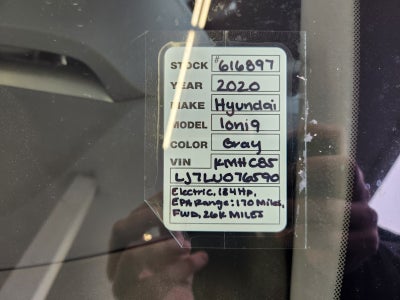 STOCK # 616897
YEAR 2020
MAKE Hyundai
MODEL Ioniq
COLOR Gray
VIN KMHC85
LJ7LU076590
Electric, 134Hp,
EPA Range: 170 Miles,
FWD, 26K MILES